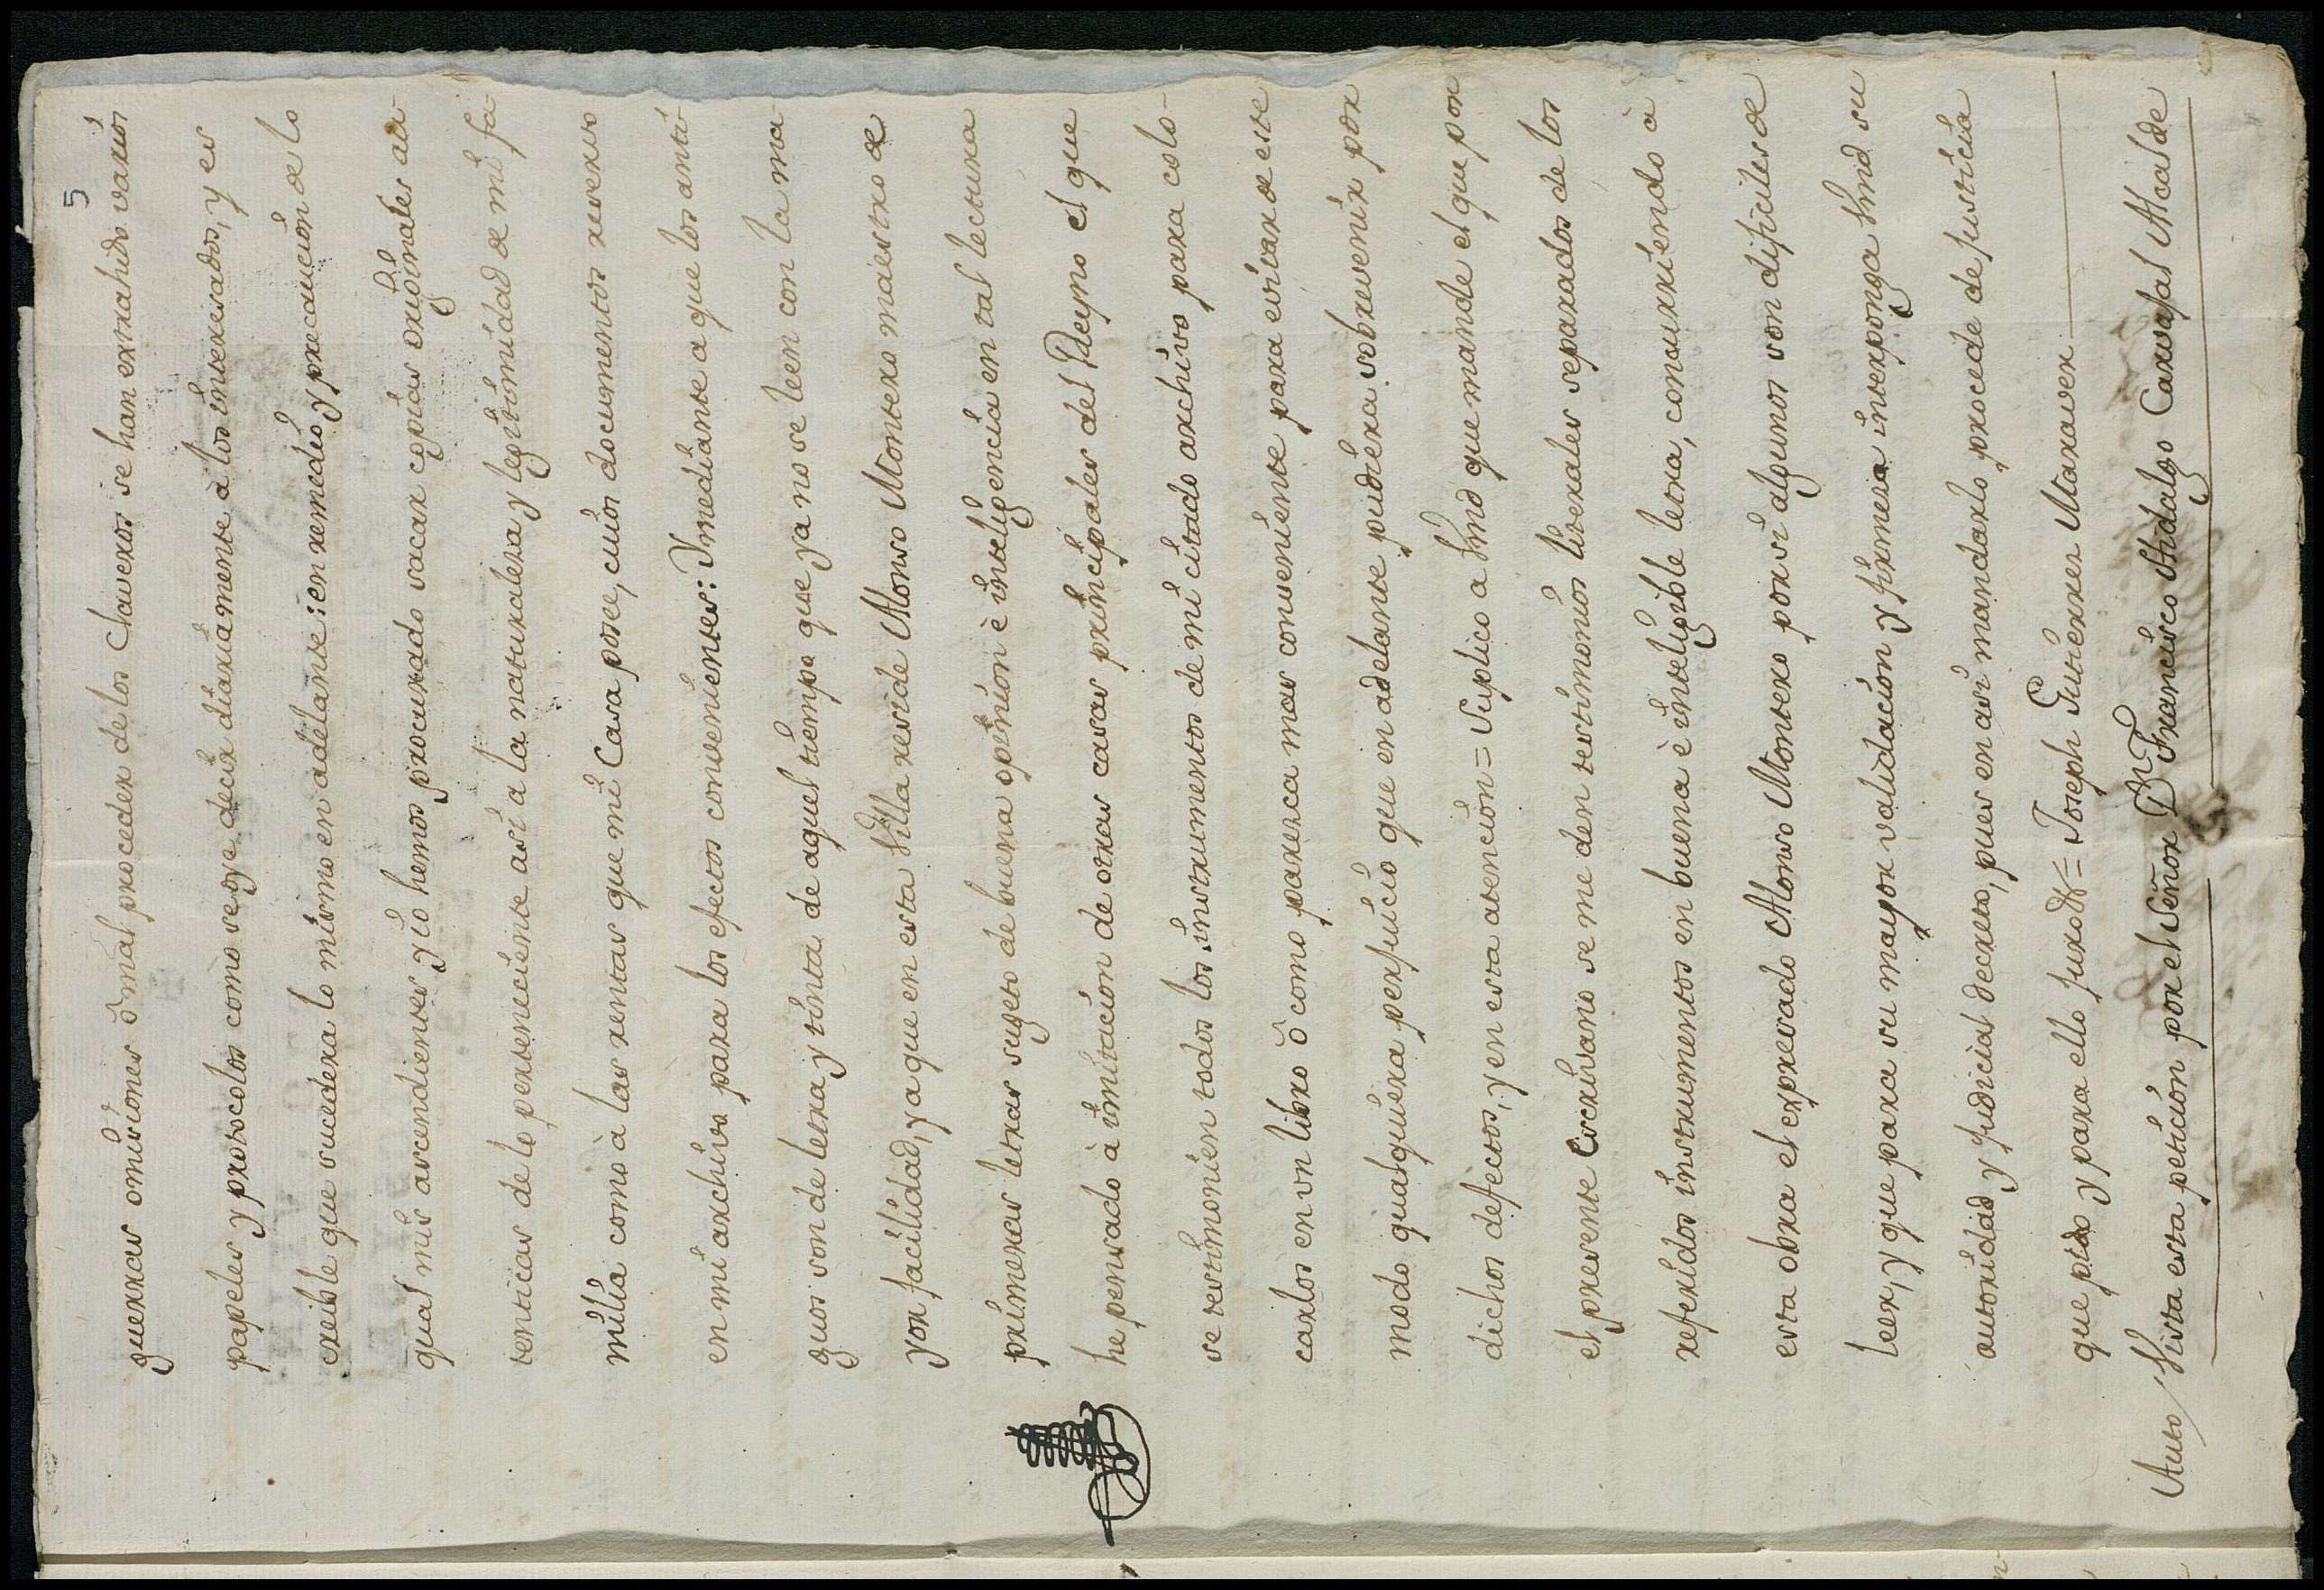 5
guerras omisiones ô mal proceder de los Claveros se han extrahido varios
papeles y protocolos como se oye decir diariamente à los interesados, y es
creible que sucedera lo mismo en adelante: en remedio y precaucion de lo
qual mis ascendientes y io hemos procurado sacar copias originales au-
tenticas de lo perteneciente asi a la naturaleza y legitimidad de mi fa-
milia como à las rentas que mi Casa posee, cuios documentos reservo
en mi archivo para los efectos convenientes: Ymediante a que los anti-
guos son de letra y tinta de aquel tiempo que ya no se leen con la ma-
yor facilidad, ya que en esta Villa reside Alonso Montero maestro de
primeras letras sugeto de buena opinion è inteligencia en tal lectura
he pensado à imitacion de otras casas principales del Reyno el que
se testimonien todos los instrumentos de mi citado archivo para colo-
carlos en vn libro ô como parezca mas conveniente para evitar de este
modo qualquiera perjuicio que en adelante pudiera sobrevenir por
dichos defectos, y en esta atencion = Suplico a Vmd que mande el que por
el presente Escrivano se me den testimonios literales separados de los
referidos instrumentos en buena è inteligible letra, concurriendo à
esta obra el expresado Alonso Montero por si algunos son dificiles de
leer, y que para su mayor validacion y firmeza interponga Vmd su
autoridad y Judicial decreto, pues en asi mandarlo procede de justicia
que pido y para ello juro &ª = Joseph Gutierrez Maraver
Auto / Vista esta peticion por el Señor Dn Francisco Hidalgo Carvajal Alcalde